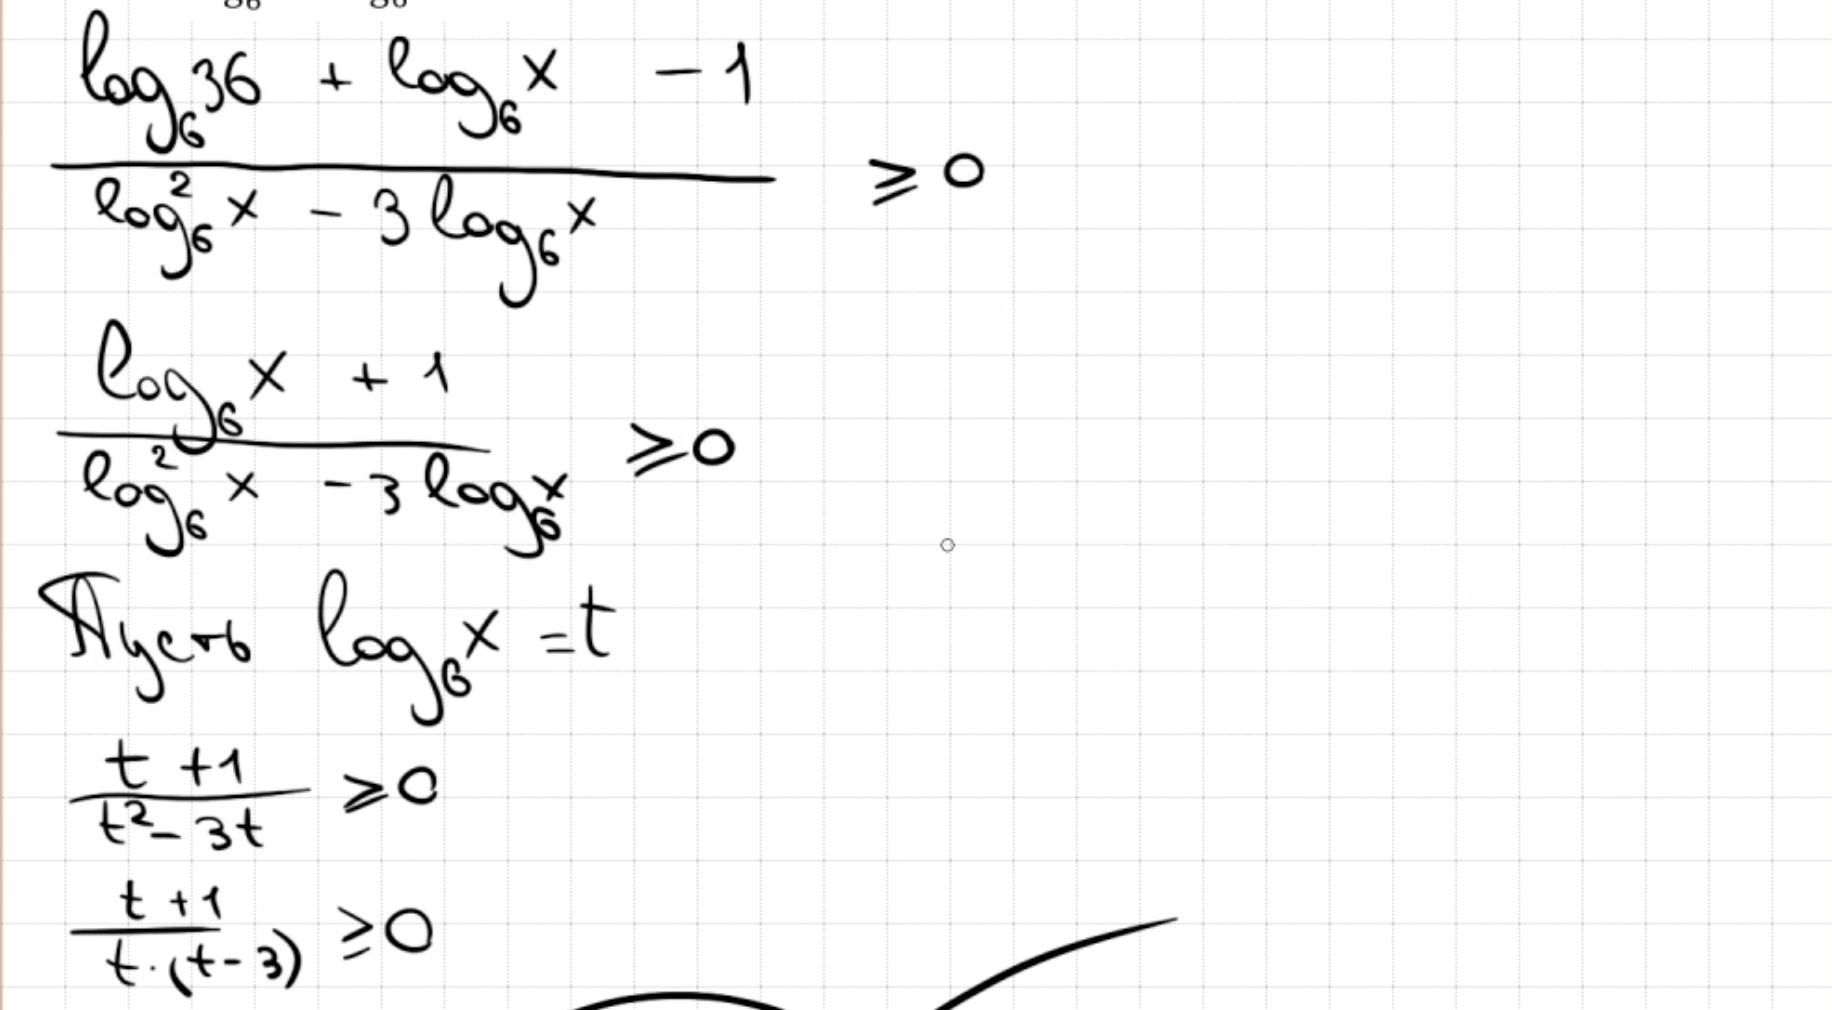 log₆36 + log₆x - 1
log₆²x - 3log₆x ≥ 0
log₆x + 1
log₆²x - 3log₆x ≥ 0
Пусть log₆x = t
t + 1
t² - 3t ≥ 0
t + 1
t·(t - 3) ≥ 0